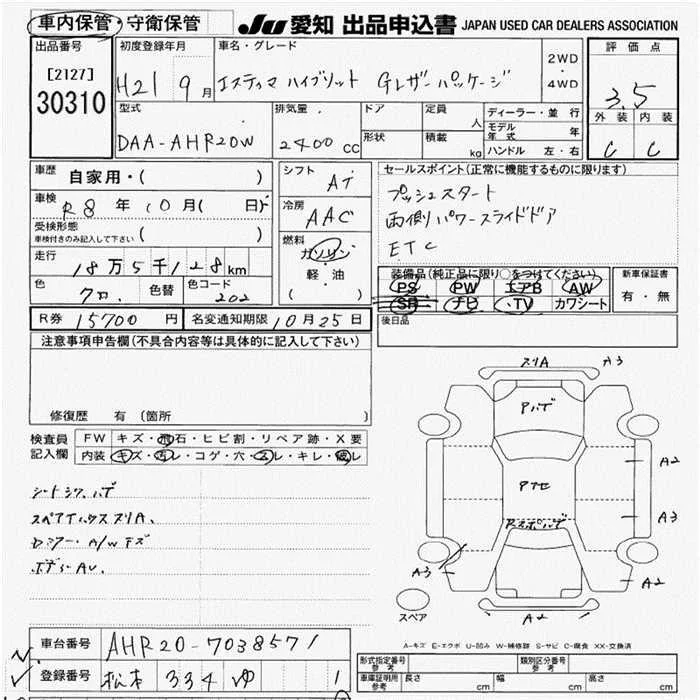 車内保管・守衛保管
JU 愛知 出品申込書 JAPAN USED CAR DEALERS ASSOCIATION
出品番号
[2127]
30310
初度登録年月
H21 9月
車名・グレード
エスティマ ハイブリット Gレザーパッケージ
2WD
・
4WD
評価点
3.5
外装 内装
C C
型式
DAA-AHR20W
排気量
2400 CC
ドア
形状
定員
人
積載
kg
ディーラー・並行
モデル年式 年
ハンドル 左・右
車歴
自家用・( )
車検 R8年10月( 日)
受検形態
車検付きのみ記入して下さい ( )
走行
18万5千128km
色
クロ.
色替
色コード
202
シフト
AT
冷房
AAC
燃料
ガソリン
・
軽・油
( )
セールスポイント(正常に機能するものに限ります)
プッシュスタート
両側パワースライドドア
ETC
装備品(純正品に限り○をつけてください)
PS PW エアB AW
SR ナビ TV カワシート
新車保証書
有・無
後日品
R券 15700円 名変通知期限 10月25日
注意事項申告欄(不具合内容等は具体的に記入して下さい)
修復歴 有 (箇所
検査員
記入欄
FW キズ・飛石・ヒビ割・リペア跡・X要
内装 キズ・汚レ・コゲ・穴・スレ・キレ・破レ
シートシワ.ハゲ
スペアハウススリA.
A/Wキズ
スリA A3
Pハゲ
A2
A3
A3
A2
A2
スペア
A-キズ E-エクボ U-凹み W-補修跡 S-サビ C-腐食 XX-交換済
車台番号 AHR20-7038571
登録番号 松本 334 ゆ 1
形式指定番号
参考
類別区分番号
参考
車庫証明用
参考
長さ cm 幅 cm 高さ cm